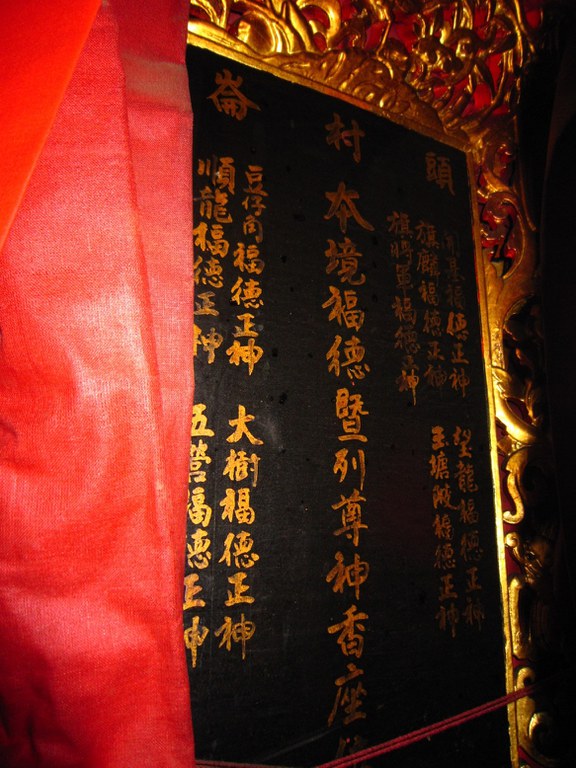 頭
崙
村本境福德暨列尊神香座
開基福德正神
旗麟福德正神
旗將軍福德正神
望龍福德正神
王塘陂福德正神
豆仔角福德正神
順龍福德正神
大樹福德正神
五營福德正神